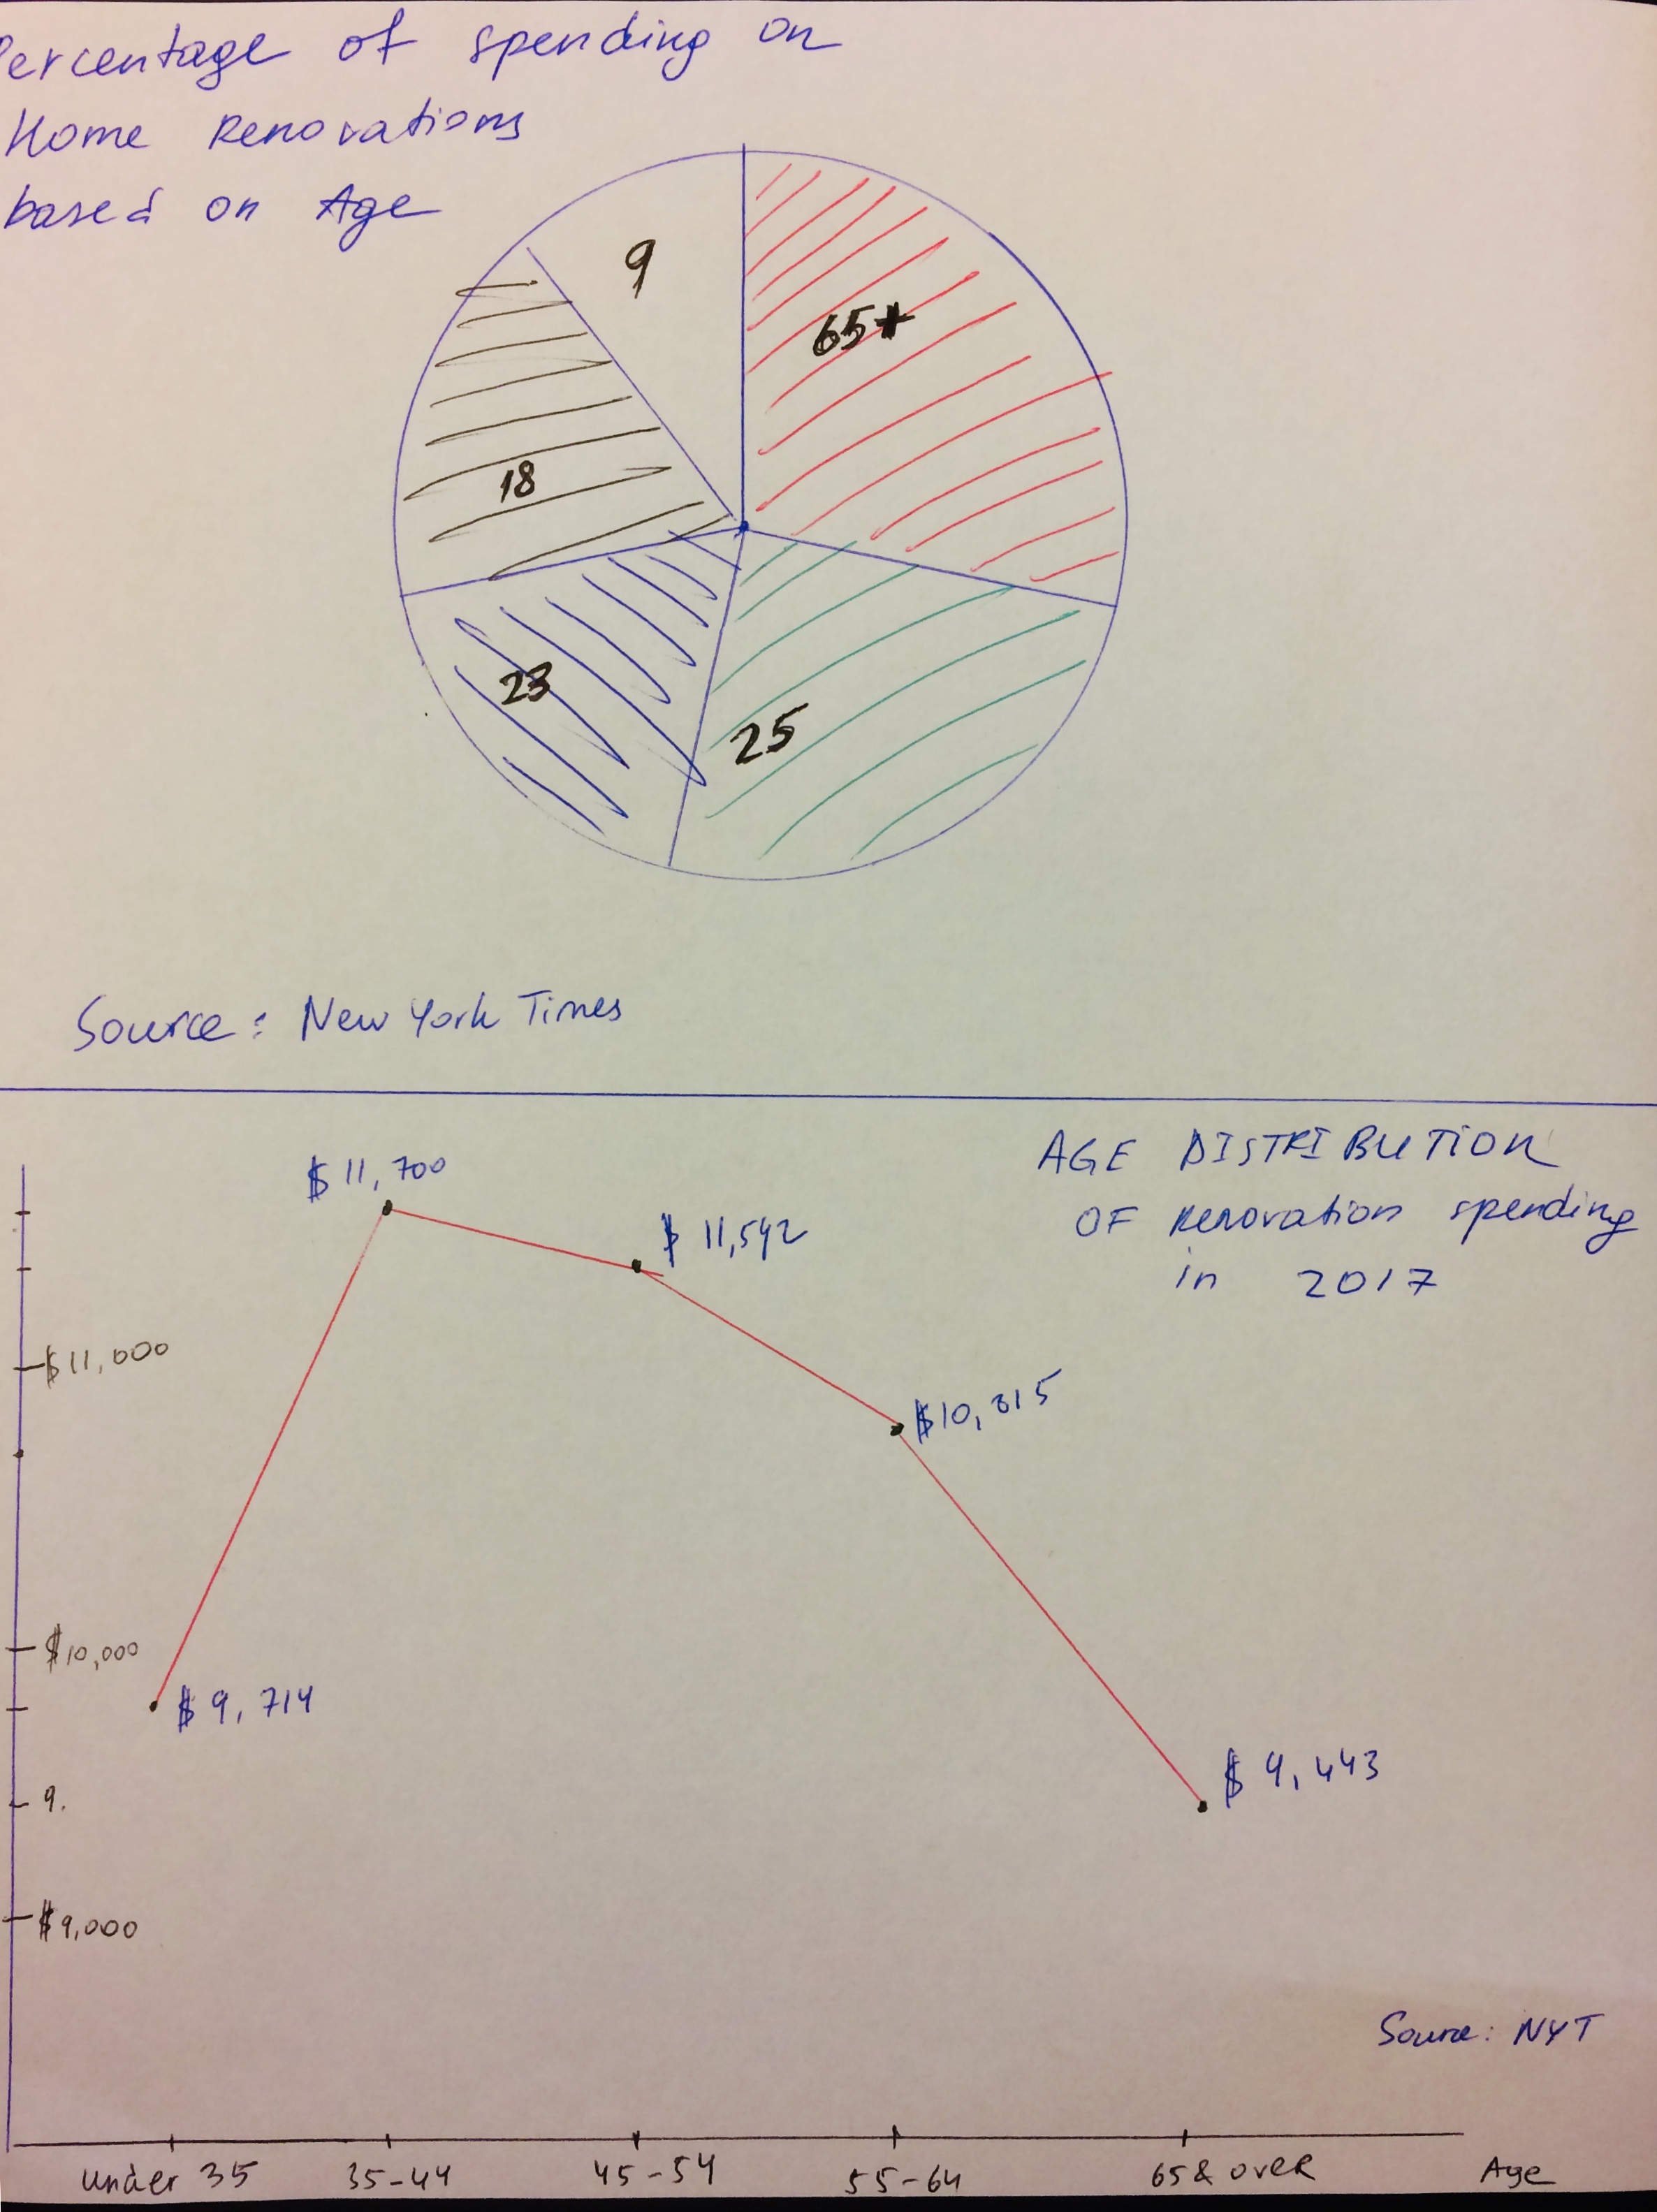 Percentage of spending on
Home Renovations
based on Age
9
65+
18
23
25
Source: New York Times
AGE DISTRIBUTION
OF Renovation spending
in 2017
$11,700
$11,592
$11,000
$10,815
$10,000
$9,714
$9,443
9.
$9,000
Source: NYT
under 35 35-44 45-54 55-64 65& over Age